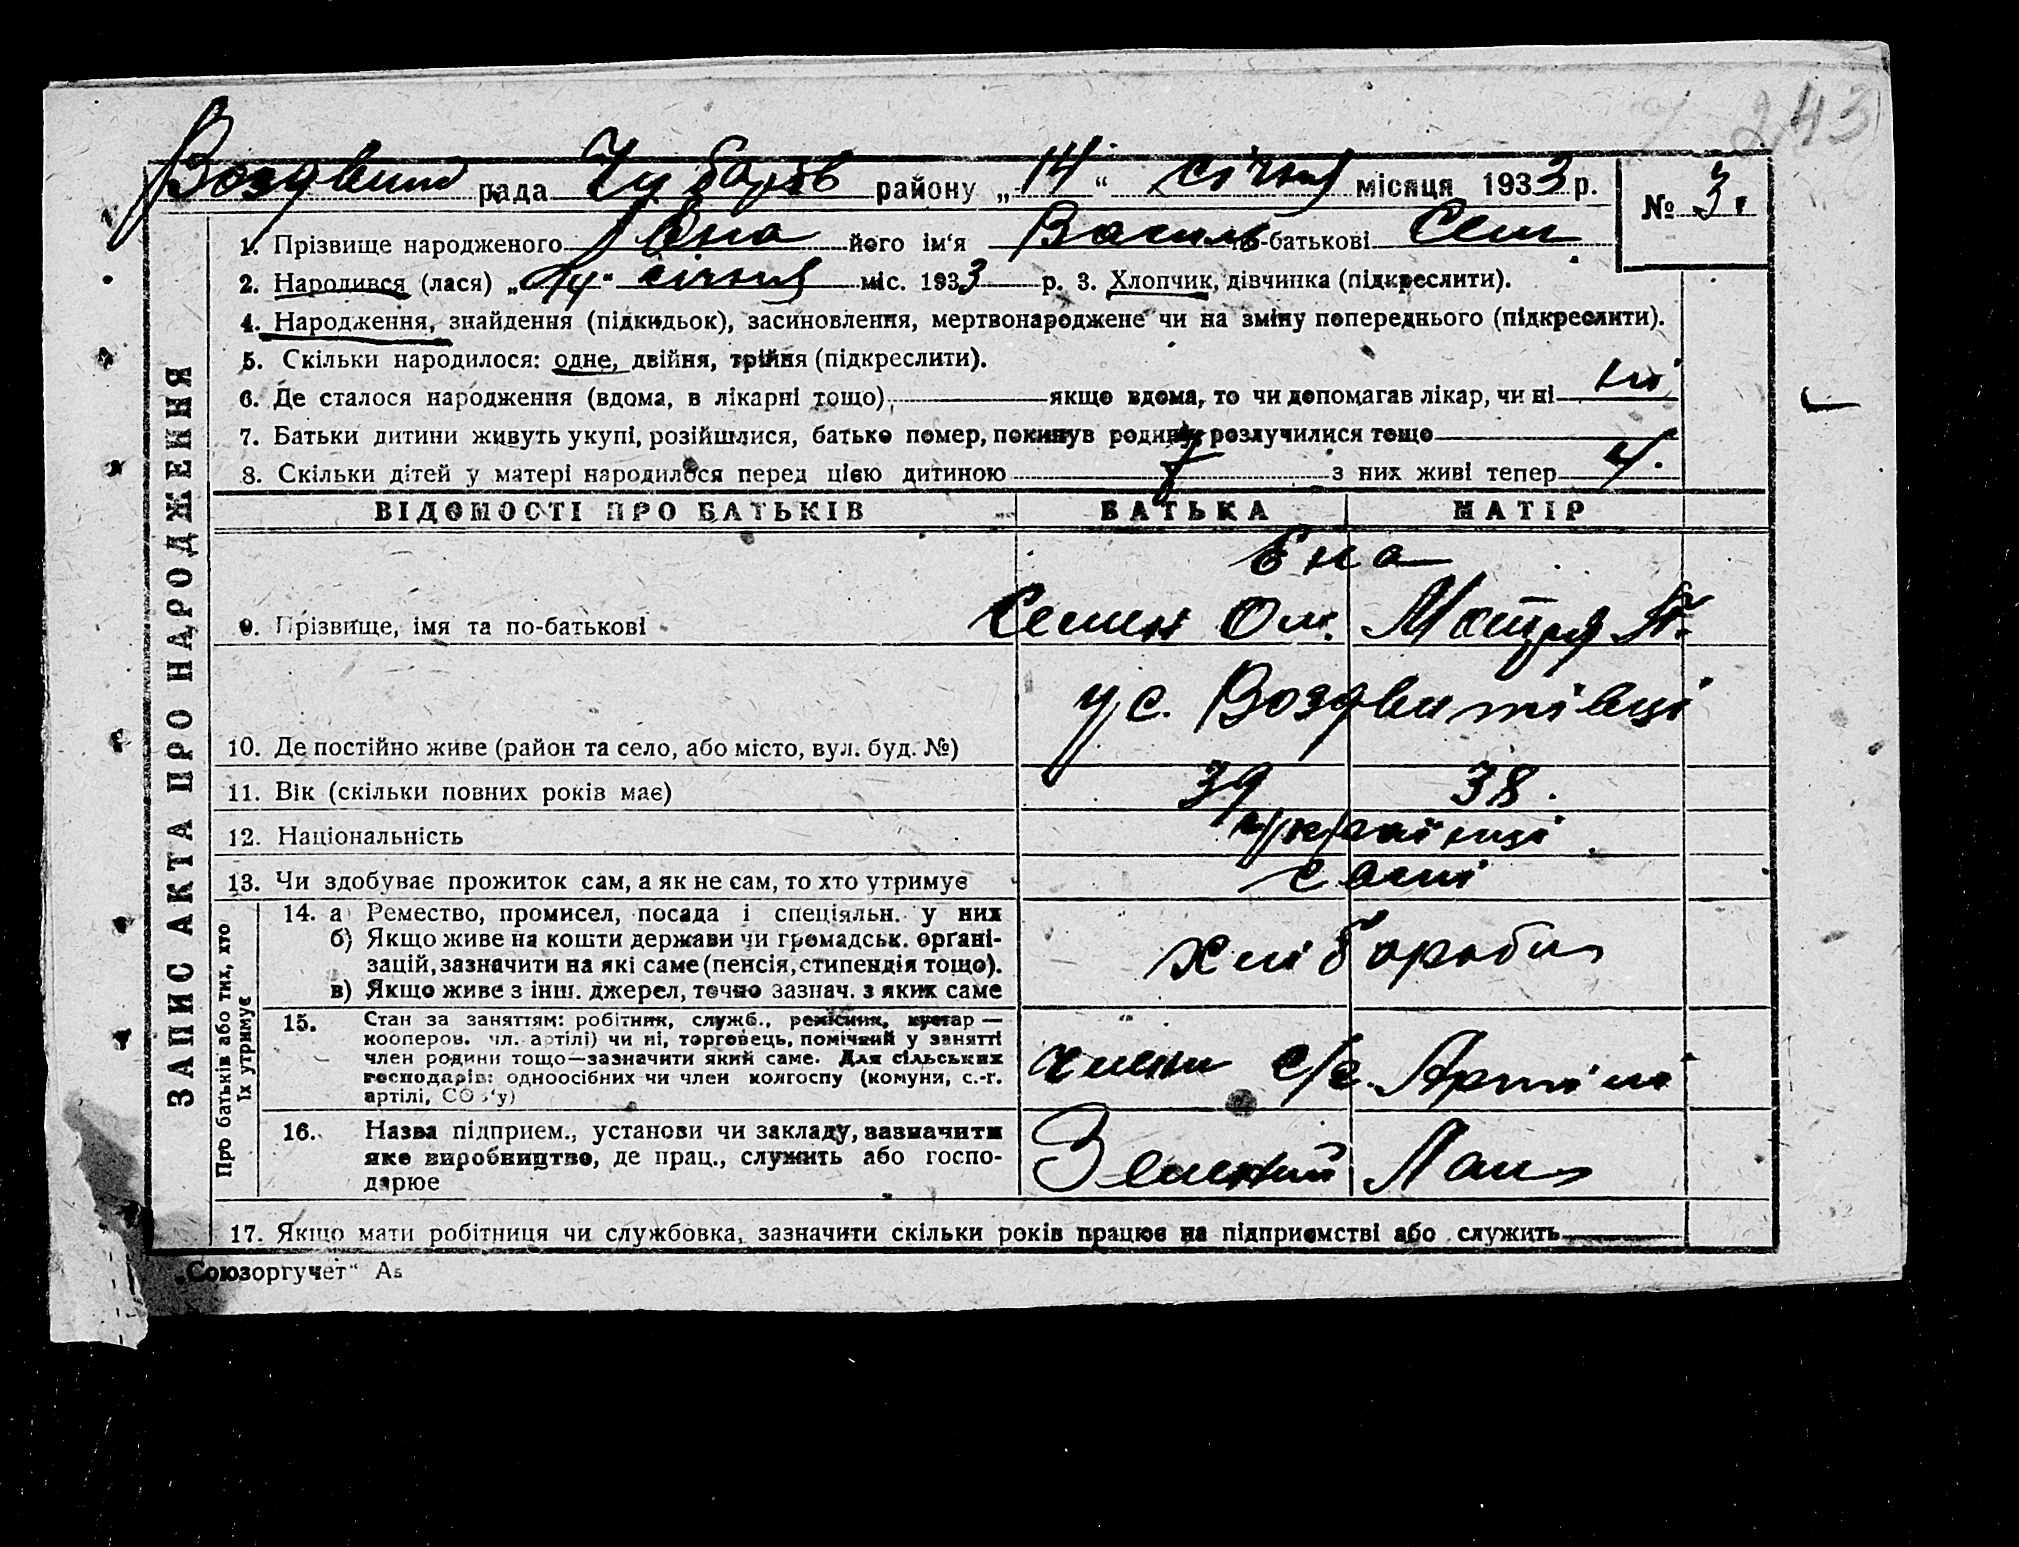 243
Воздвиж рада Чубарів району „14“ січня місяця 1933 р. № 3.
1. Прізвище народженого Єна його ім'я Василь по-батькові Сем
2. Народився (лася) „ січня міс. 1933 р. 3. Хлопчик, дівчинка (підкреслити).
4. Народження, знайдення (підкидьок), засиновлення, мертвонароджене чи на зміну попереднього (підкреслити).
5. Скільки народилося: одне, двійня, трійня (підкреслити).
6. Де сталося народження (вдома, в лікарні тощо), якщо вдома, то чи допомагав лікар, чи ні ні
7. Батьки дитини живуть укупі, розійшлися, батько помер, покинув родину, розлучилися тощо
8. Скільки дітей у матері народилося перед цією дитиною 7 з них живі тепер 4.
ЗАПИС АКТА ПРО НАРОДЖЕННЯ
ВІДОМОСТІ ПРО БАТЬКІВ БАТЬКА МАТІР
Єна
9. Прізвище, імя та по-батькові Семен Ом. Мотря
у с. Воздвитівці
10. Де постійно живе (район та село, або місто, вул. буд. №)
11. Вік (скільки повних років має) 39 38.
12. Національність українці
13. Чи здобуває прожиток сам, а як не сам, то хто утримує самі
Про батьків або тих, хто
їх утримує
14. а) Ремество, промисел, посада і спеціяльн. у них
б) Якщо живе на кошти держави чи громадськ. органі-
зацій, зазначити на які саме (пенсія, стипендія тощо).
в) Якщо живе з інш. джерел, точно зазнач. з яких саме
хлібороби
15. Стан за заняттям: робітник, служб., ремісник, кустар —
кооперов. чл. артілі) чи ні, торговець, помічний у занятті
член родини тощо—зазначити який саме. Для сільських
господарів: одноосібних чи член колгоспу (комуни, с.-г.
артілі, СОЗ'у)
члени с/г. Артілі
16. Назва підприєм., установи чи закладу, зазначити
яке виробництво, де прац., служить або госпо-
дарює
Зелений Лан
17. Якщо мати робітниця чи службовка, зазначити скільки років працює на підприємстві або служить
„Союзоргучет“